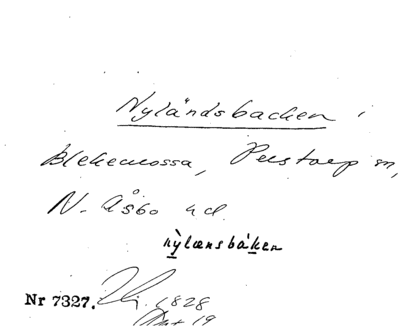 Nyländsbacken i
Blekemossa, Perstorp sn,
N. Åsbo hd.
nỳlænsbáken
Nr 7327. 1828
19